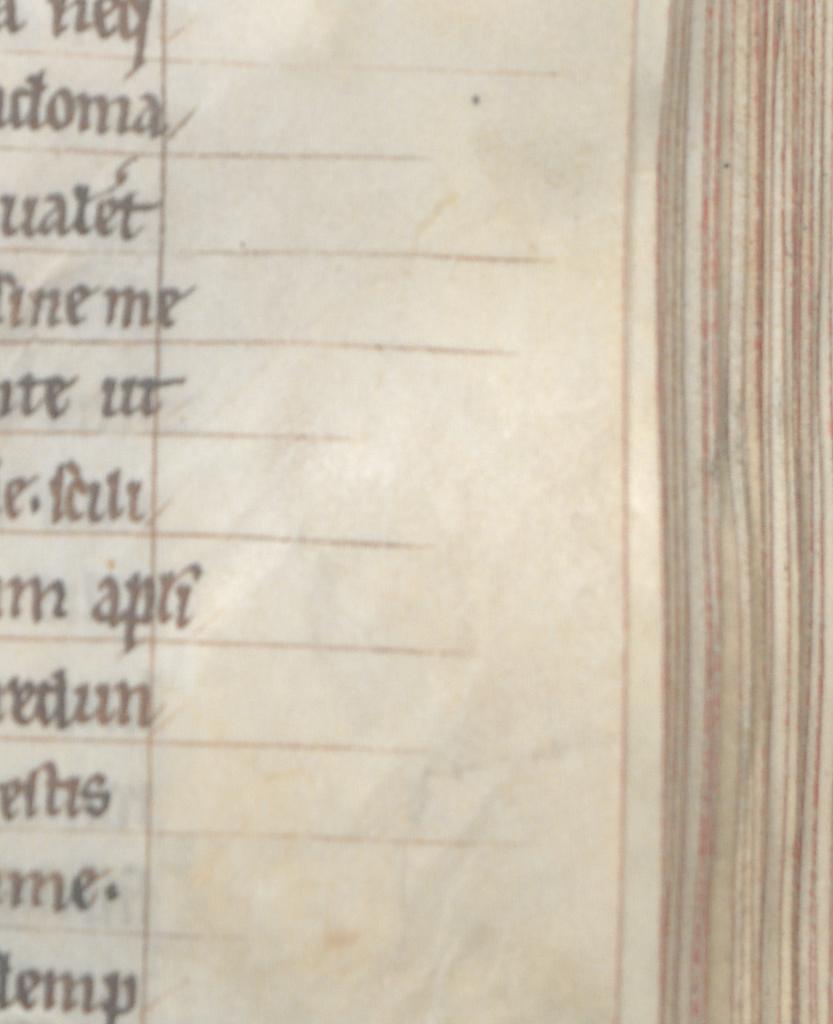 neq
doma
ualet
sine me
ite ut
e. scili
m apłi
redun
estis
me.
temp